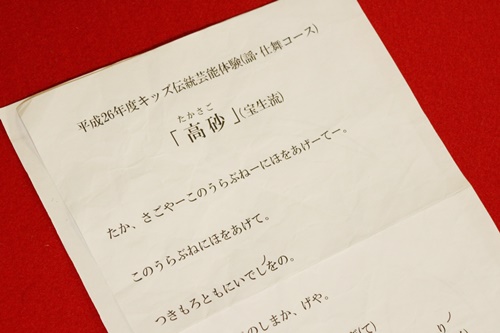 平成26年度キッズ伝統芸能体験(謡・仕舞コース)
たかさご
「高砂」(宝生流)
たか、さごやーこのうらぶねーにほをあげーてー。
このうらぶねにほをあげて。
つきもろともにいでしをの。
のしまか、げや。
て)
り